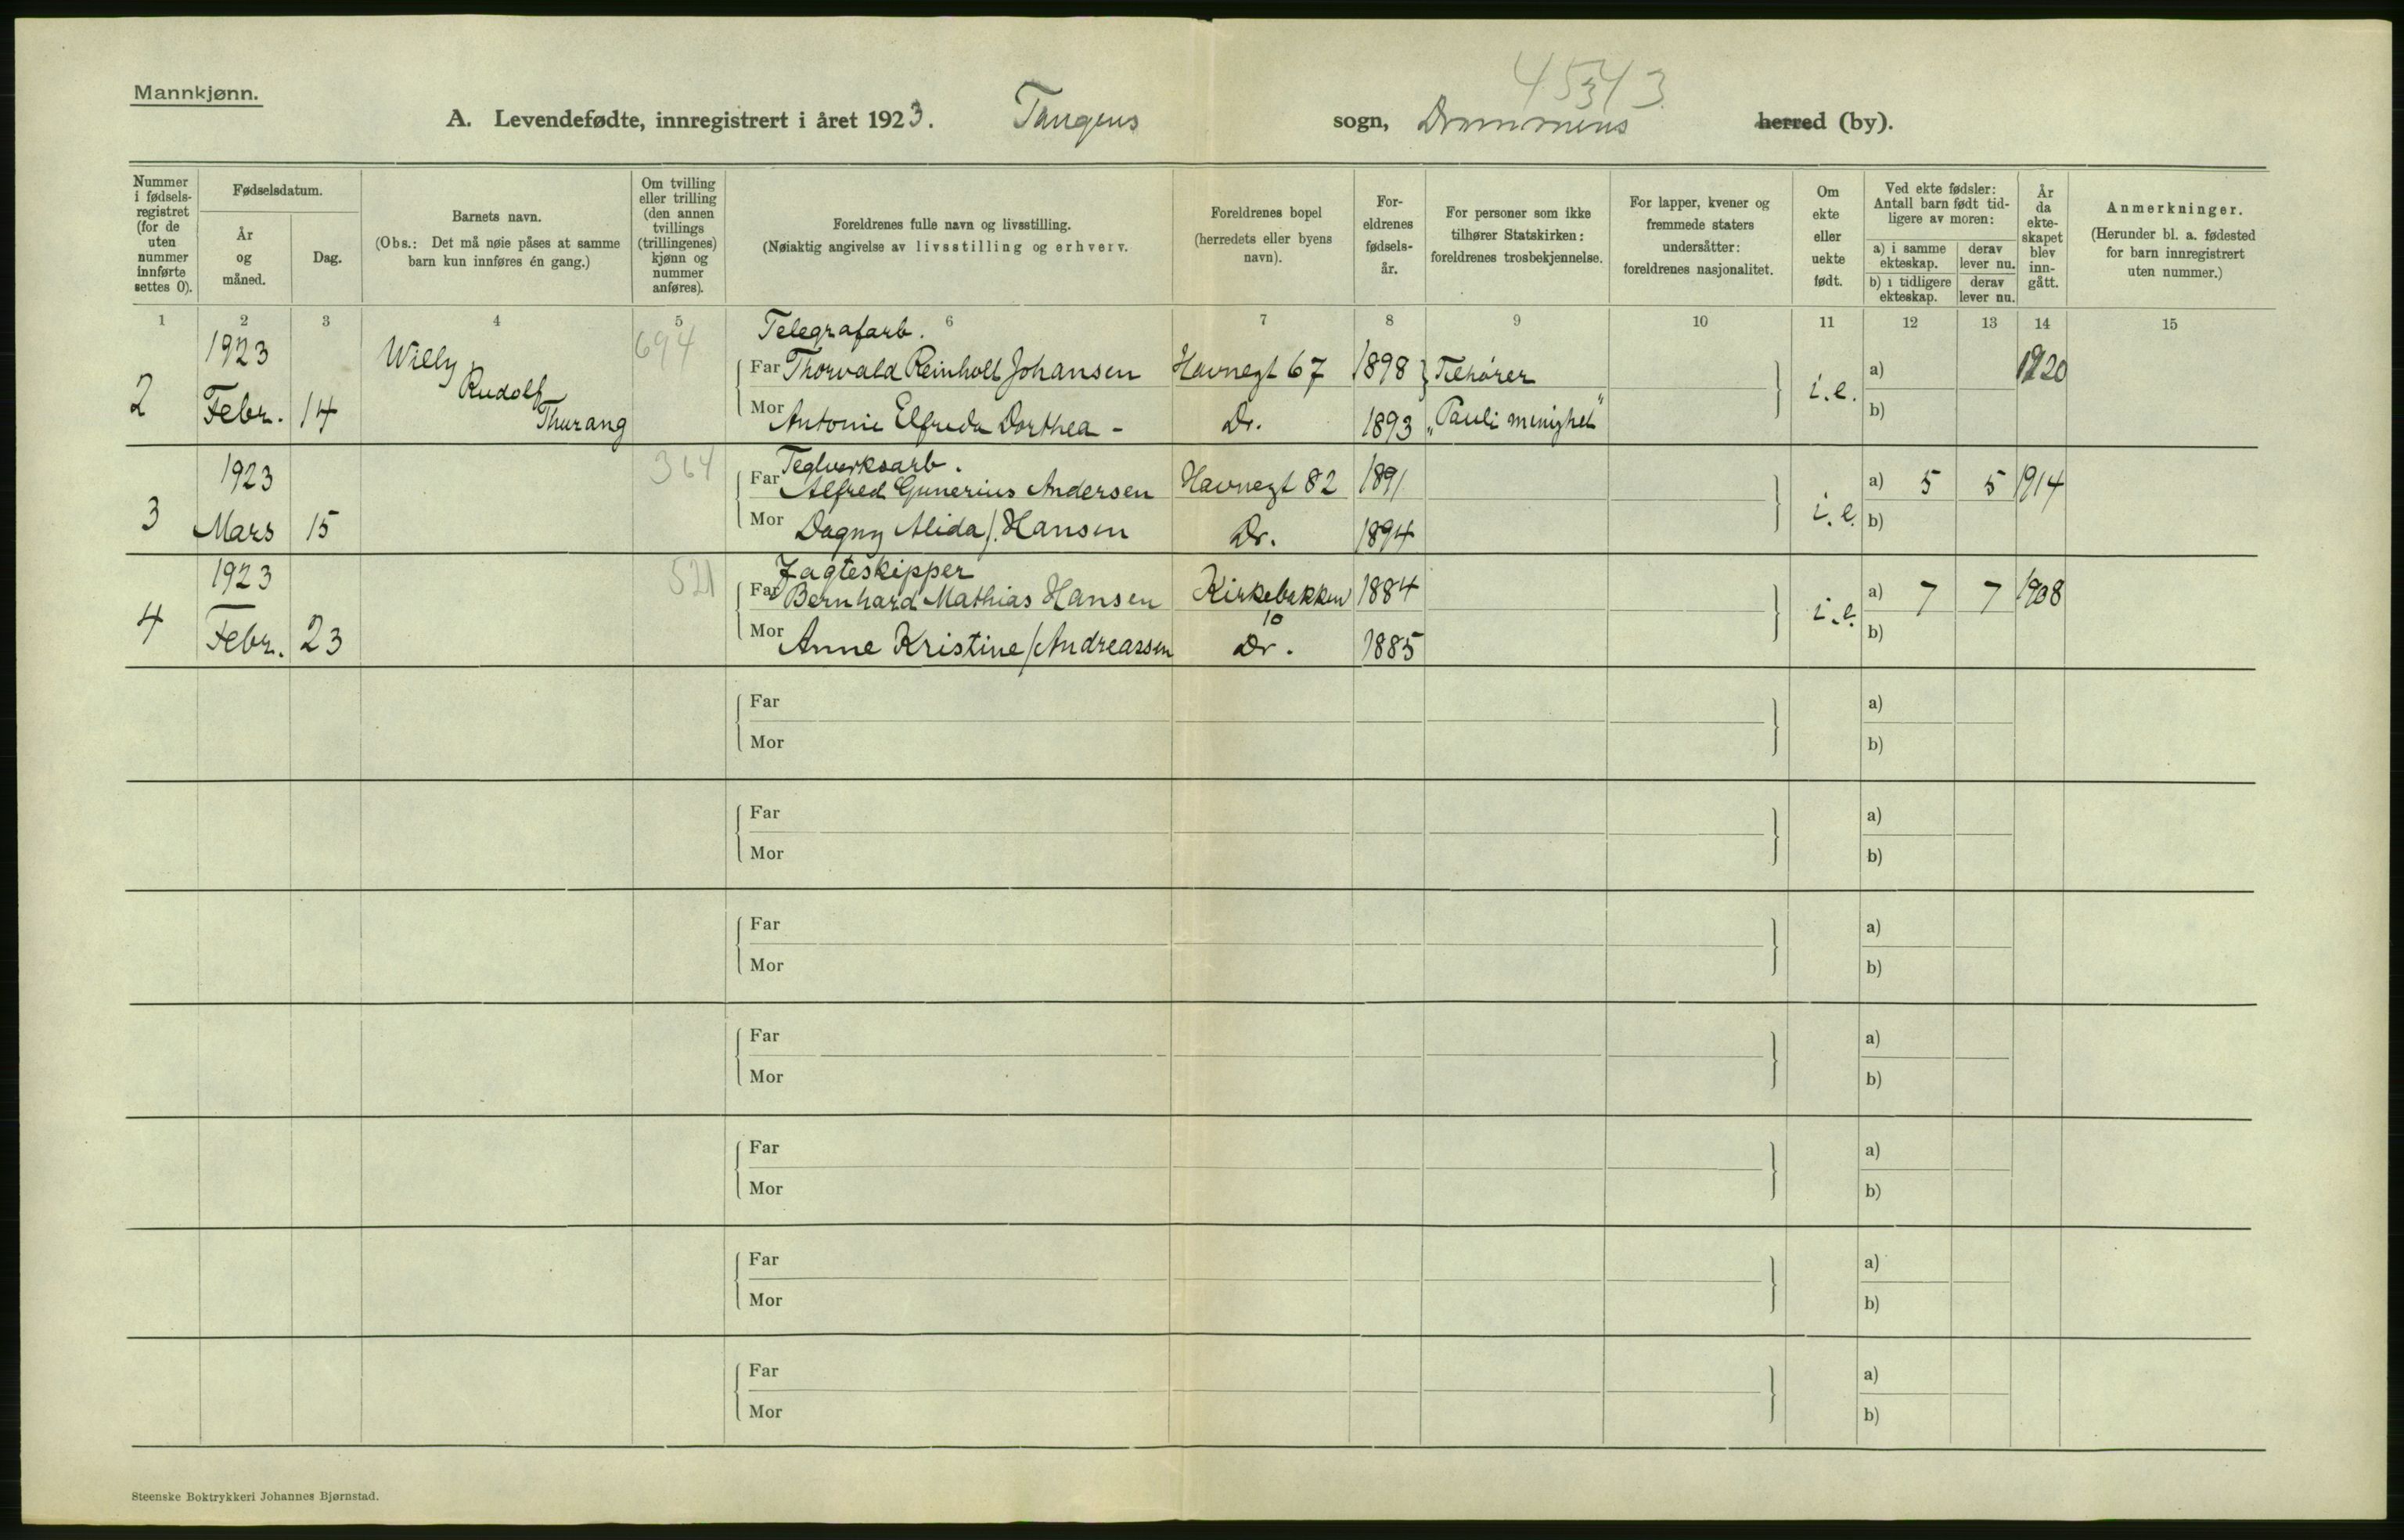 Mannkjønn.
45343
A. Levendefødte, innregistrert i året 1923. Tangens sogn, Drammens herred (by).
Nummer i fødsels-registret (for de uten nummer innførte settes 0).
Fødselsdatum.
År og måned.
Dag.
Barnets navn.
(Obs.: Det må nøie påses at samme barn kun innføres én gang.)
Om tvilling eller trilling (den annen tvillings (trillingenes) kjønn og nummer anføres).
Foreldrenes fulle navn og livsstilling.
(Nøiaktig angivelse av livsstilling og erhverv.
Foreldrenes bopel (herredets eller byens navn).
For-eldrenes fødsels-år.
For personer som ikke tilhører Statskirken: foreldrenes trosbekjennelse.
For lapper, kvener og fremmede staters undersåtter: foreldrenes nasjonalitet.
Om ekte eller uekte født.
Ved ekte fødsler: Antall barn født tid-ligere av moren:
a) i samme ekteskap.
derav lever nu.
b) i tidligere ekteskap.
derav lever nu.
År da ekte-skapet blev inn-gått.
Anmerkninger.
(Herunder bl. a. fødested for barn innregistrert uten nummer.)
1 2 3 4 5 6 7 8 9 10 11 12 13 14 15
2 1923 Febr. 14 Willy Rudolf Thurang 694 Telegrafarb.
Far Thorvald Reinholt Johansen Havnegt 67 1898 } Tilhører i.e. a) 1920
Mor Antonie Elfreda Dorthea - Dr. 1893 "Pauli menighet" b)
3 1923 Mars 15 364 Teglverksarb.
Far Alfred Gunerius Andersen Havnegt 82 1891 i.e. a) 5 5 1914
Mor Dagny Alida /. Hansen Dr. 1894 b)
4 1923 Febr. 23 521 Jagteskipper
Far Bernhard Mathias Hansen Kirkebakken 10 1884 i.e. a) 7 7 1908
Mor Anne Kristine / Andreassen Dr. 1885 b)
Far a)
Mor b)
Far a)
Mor b)
Far a)
Mor b)
Far a)
Mor b)
Far a)
Mor b)
Far a)
Mor b)
Far a)
Mor b)
Steenske Boktrykkeri Johannes Bjørnstad.